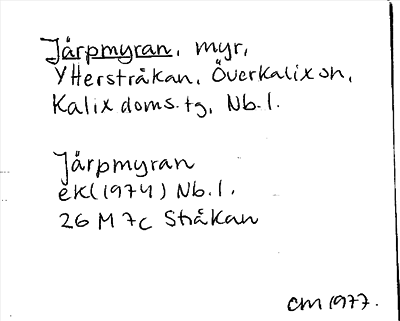 Järpmyran, myr,
Ytterstråkan, Överkalix sn,
Kalix doms. tg, Nb. l.
Järpmyran
ek (1974) Nb. l.
26 M 7c Stråkan
CM 1977.